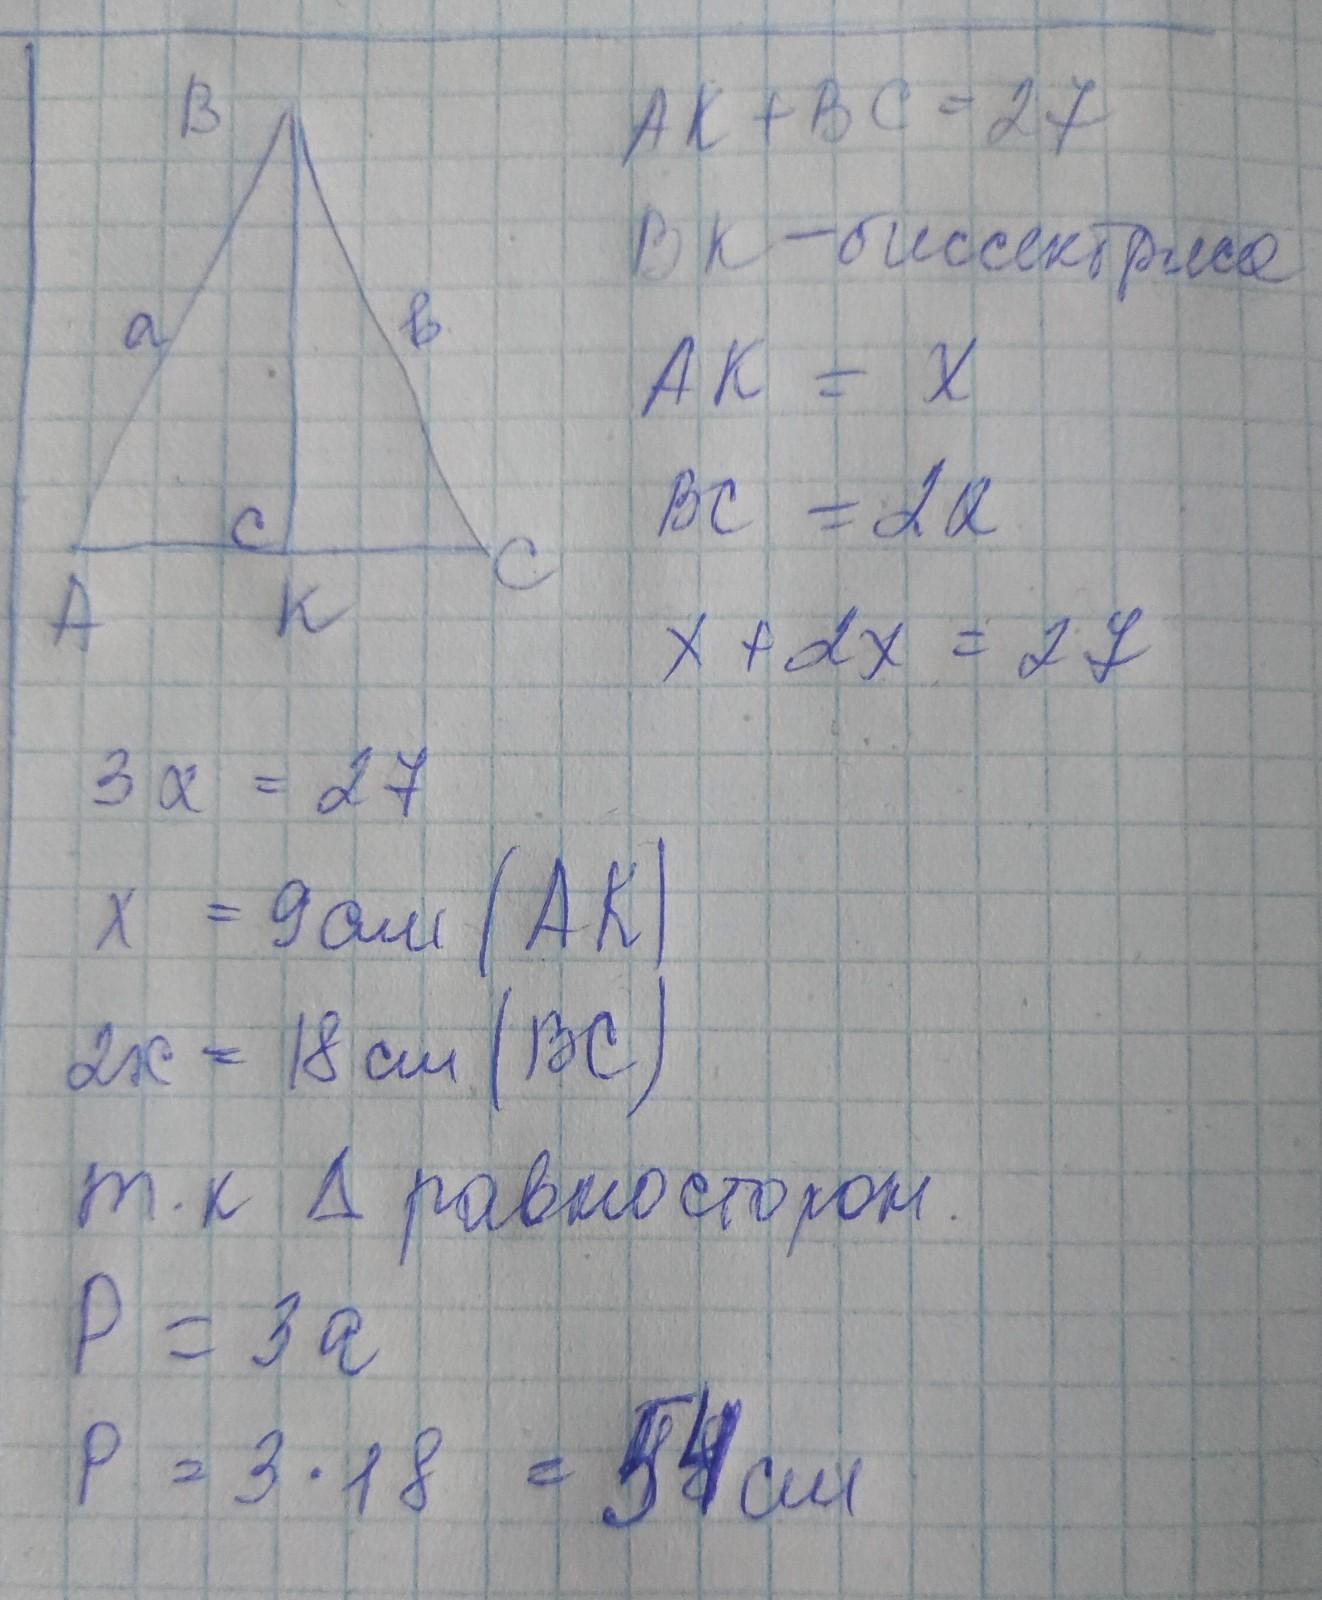 B
a
в
c
A
K
C
AK + BC = 27
BK - биссектриса
AK = X
BC = 2x
x + 2x = 27
3x = 27
x = 9 см (AK)
2x = 18 см (BC)
т.к Δ равносторон.
P = 3a
P = 3 · 18 = 54 см